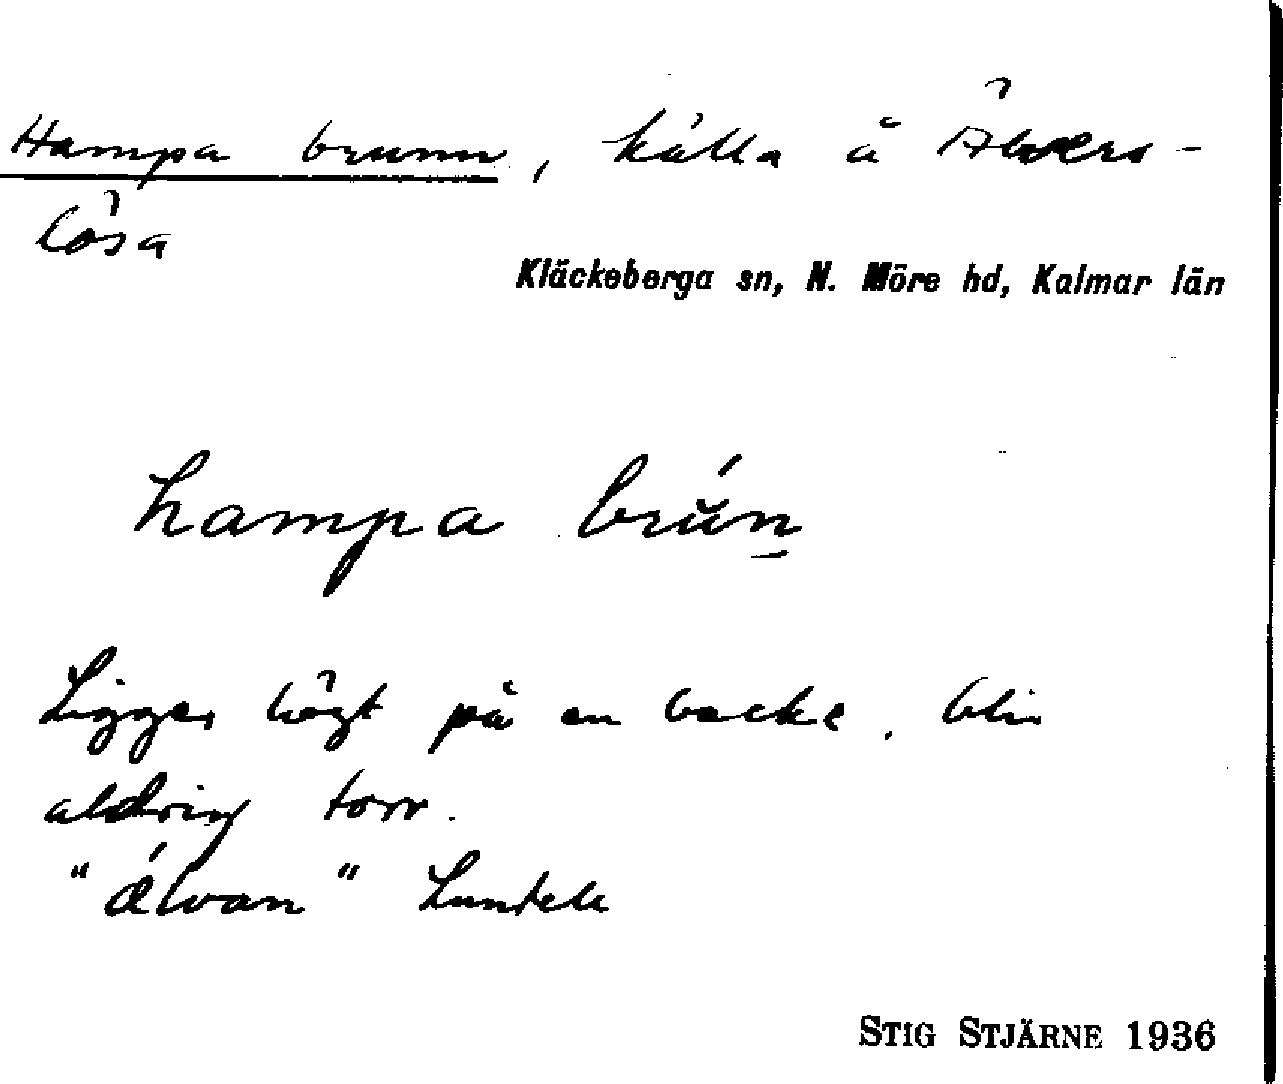 Hampa brunn, källa å Älvers-
lösa
Kläckeberga sn, N. Möre hd, Kalmar län
hampa brŭ́n̲
Ligger högt på en backe, blir
aldrig torr.
"ǽlvan"
STIG STJÄRNE 1936